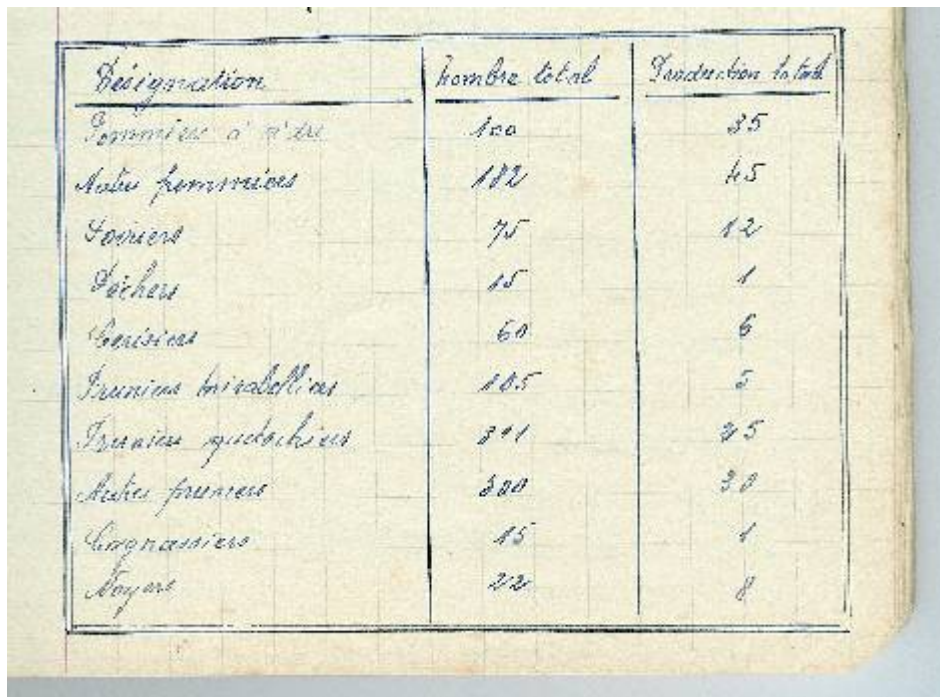 Désignation Nombre total Production totale
Pommiers à cidre 100 35
Autres pommiers 182 45
Poiriers 75 12
Pêchers 15 1
Cerisiers 60 6
Pruniers mirabelliers 105 5
Pruniers quetschiers
Autres pruniers 300 30
Cognassiers 15 1
Noyers 22 8